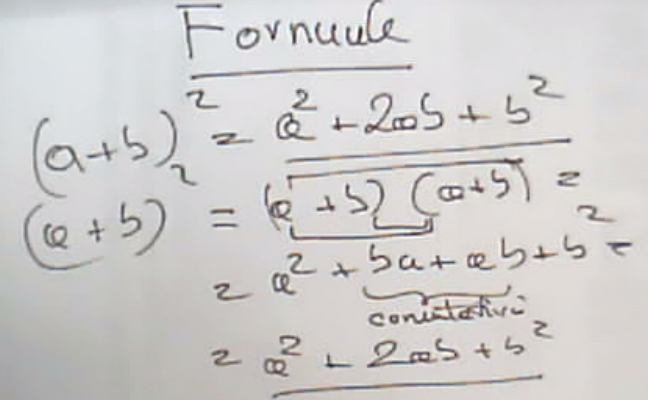 Formule
(a+b)² = a² + 2ab + b²
(a+b)² = (a+b) (a+b) =
= a² + ba + ab + b² =
comutativi
= a² + 2ab + b²